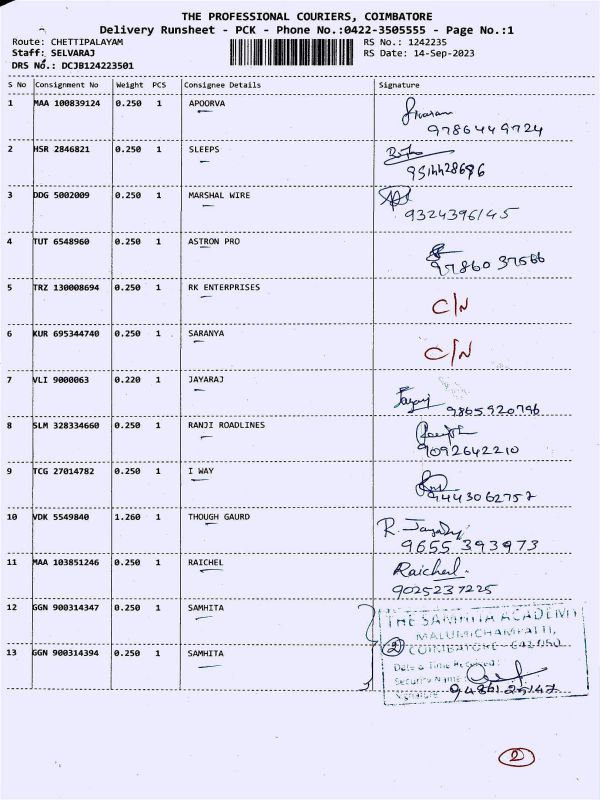 THE PROFESSIONAL COURIERS, COIMBATORE
Delivery Runsheet - PCK - Phone No.:0422-3505555 - Page No.:1
Route: CHETTIPALAYAM RS No.: 1242235
Staff: SELVARAJ RS Date: 14-Sep-2023
DRS No.: DCJB124223501
S No Consignment No Weight PCS Consignee Details Signature
1 MAA 100839124 0.250 1 APOORVA
9786449724
2 HSR 2846821 0.250 1 SLEEPS
9514428696
3 DDG 5002009 0.250 1 MARSHAL WIRE
9324396145
4 TUT 6548960 0.250 1 ASTRON PRO
9786037566
5 TRZ 130008694 0.250 1 RK ENTERPRISES C/N
6 KUR 695344740 0.250 1 SARANYA C/N
7 VLI 9000063 0.220 1 JAYARAJ
9865920796
8 SLM 328334660 0.250 1 RANJI ROADLINES
9092642210
9 TCG 27014782 0.250 1 I WAY
9443062757
10 VDK 5549840 1.260 1 THOUGH GAURD
9655 393973
11 MAA 103851246 0.250 1 RAICHEL Raichel.
9025237225
12 GGN 900314347 0.250 1 SAMHITA THE SAMHITA ACADEMY
MALUMICHAMPATTI,
13 GGN 900314394 0.250 1 SAMHITA 2 COIMBATORE - 641050
Date & Time Received:
Security Name:
Signature 9486125147
2